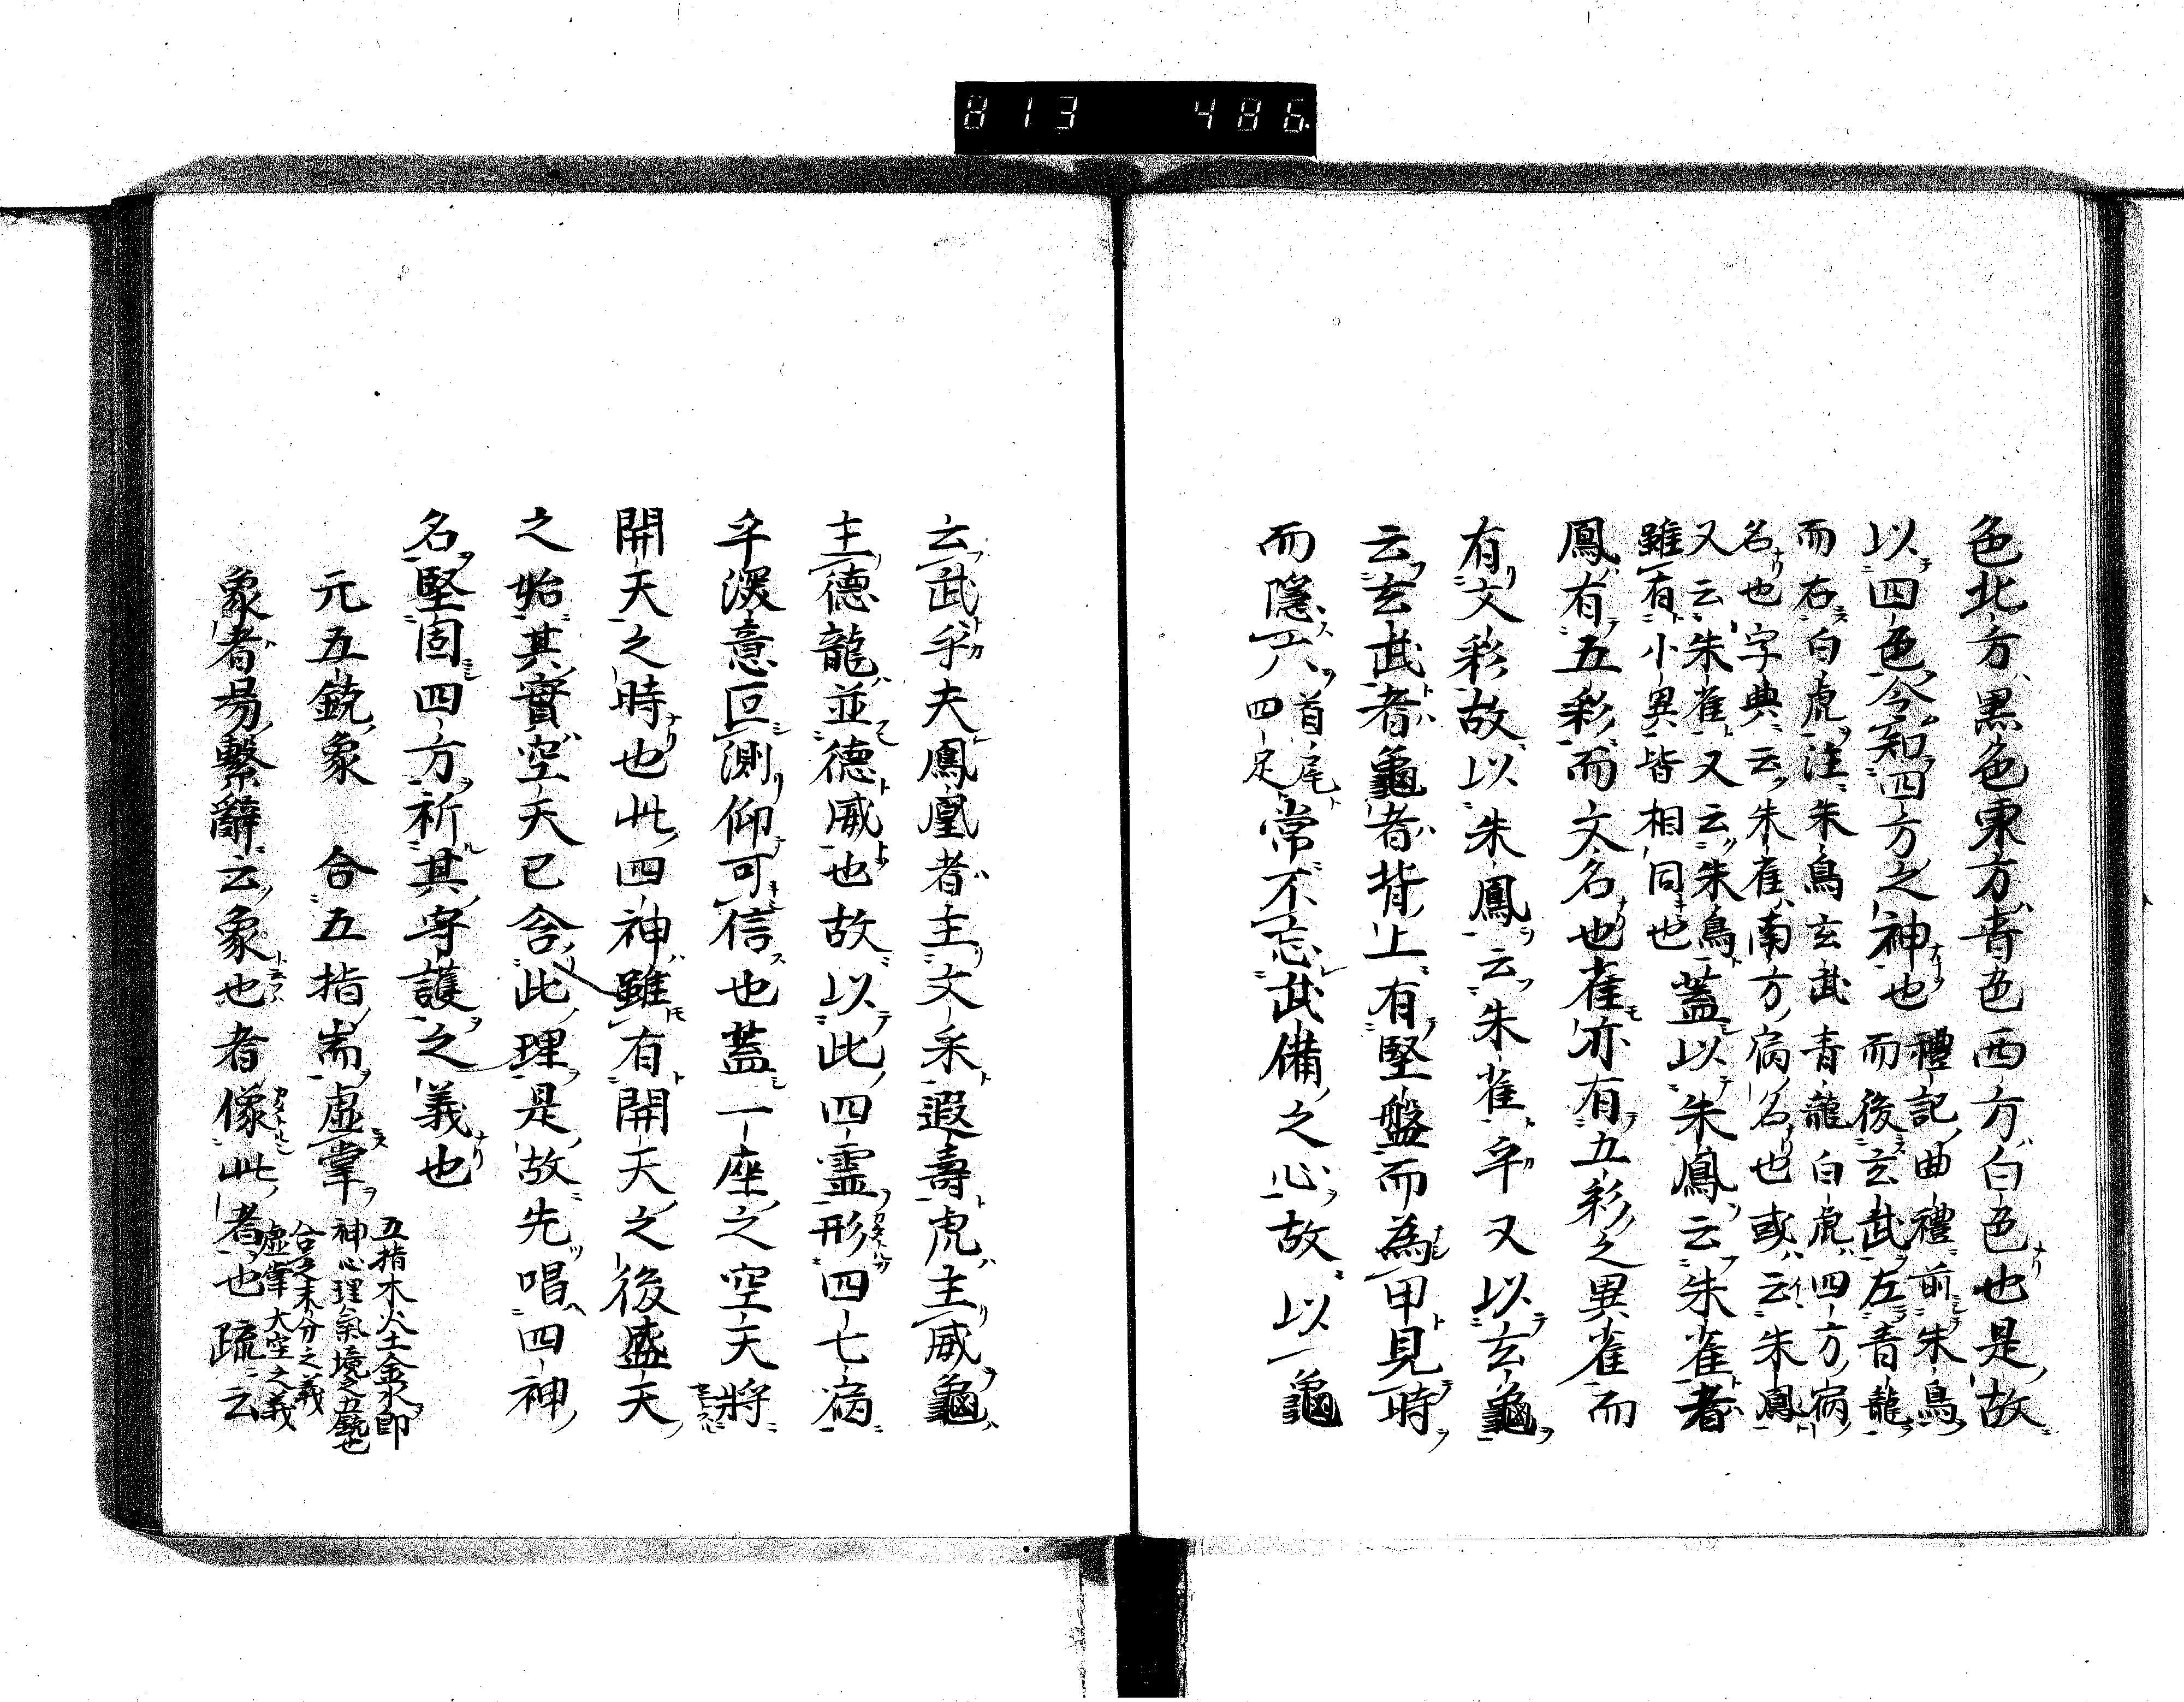 813 486
色北方黒色東方青色西方白色也是故
以四色今知四方之神也
禮記曲禮前朱鳥
而後玄武左青龍
而右白虎注朱鳥玄武青龍白虎四方宿
名也字典云朱雀南方宿名也或云朱鳳
又云朱雀又云朱鳥
雖有小異皆相同也
蓋以朱鳳云朱雀者
鳳有五彩而文名也雀亦有五彩之異雀而
有文彩故以朱鳳云朱雀乎又以玄龜
云玄武者龜者背上有堅盤而為甲見時
而隱六
首尾
四足
常不忘武備之心故以龜
云武乎夫鳳凰者主文采遐壽虎主威龜
主德龍並德威也故以此四霊形四七宿
乎深意叵測仰可信也蓋一座之空天將
開天之時也此四神雖有開天之後盛天
之始其實空天已含此理是故先唱四神
名堅固四方祈其守護之義也
元五銃象 合五指耑虛掌
五指木火土金水即
神心理氣境之五銃也
合之未分之義
虛掌大空之義
象者易繫辭云象也者像此者也疏云